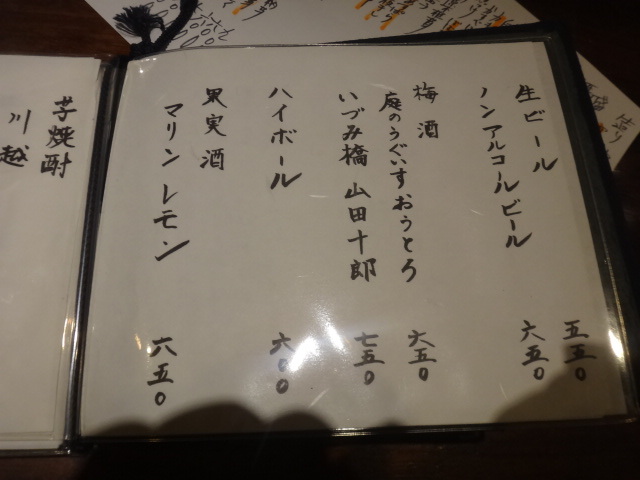 生ビール 五五〇
ノンアルコールビール 六五〇
梅酒
庭のうぐいすおうとろ 六五〇
いづみ橋 山田十郎 七五〇
ハイボール 六〇〇
果実酒
マリンレモン 六五〇
芋焼酎
川越